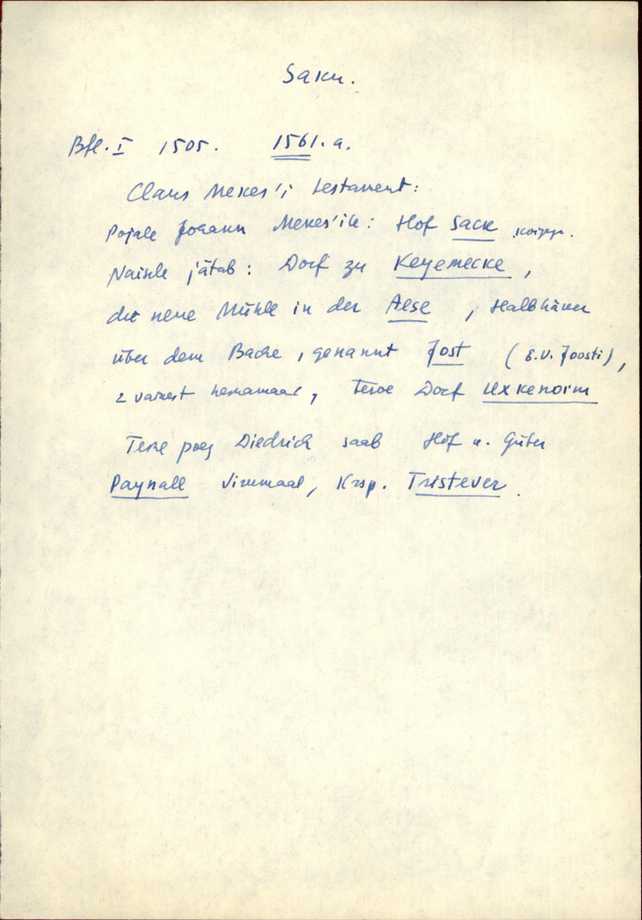 Saku.
Bfl. I 1505. 1561. a.
Claus Mekes'i testament:
Pojale Johann Mekes'ile: Hof Sack
Naisele jätab: Dorf zu Keyemecke,
die neue Mühle in der Aese, Halbhäker
über dem Bache, genannt Jost (E.V. Joosti),
2 vanast heinamaad, Terve Dorf Uxkenorm
Teine poeg Diedrich saab Hof u. Güter
Paynall Virumaal, Krsp. Tristever.